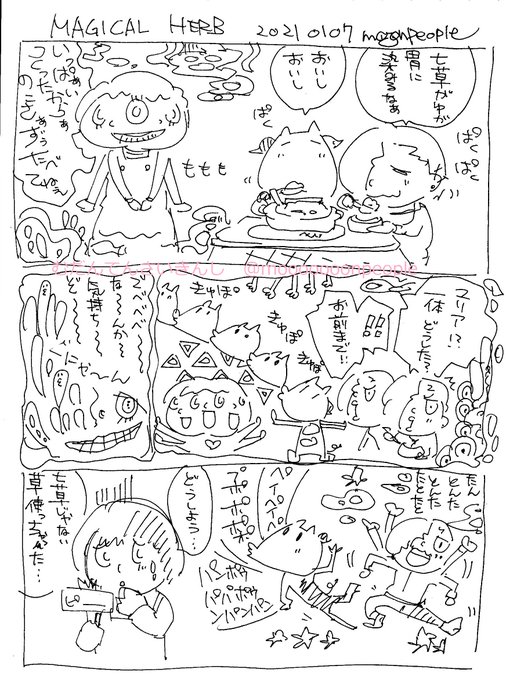 MAGICAL HERB
20210107 moonpeople
七草がゆが
胃に
染みるなぁ
ぱく
ぱく
ぱく
おいし
おいし
ぱく
ももも
いっぱぁい
つくったからぁ
のこさずぅたべ
てねぇ
むだんてんさいきんし @moonmoonpeople
マリア!?
一体
どうした?
お前まで!!
きゅぽ
きゅぽ
きゅぽ。
でべべべべ
な〜んか〜
気持ち〜
ぞ〜
にゃ〜ん
たん
とんた
とんた
たとたと
ペーイ
ペペペ
ポポポポ
パンポゥ
パパポゥ
ンパンパン
どうしよう…
七草じゃない
草使っちゃった…